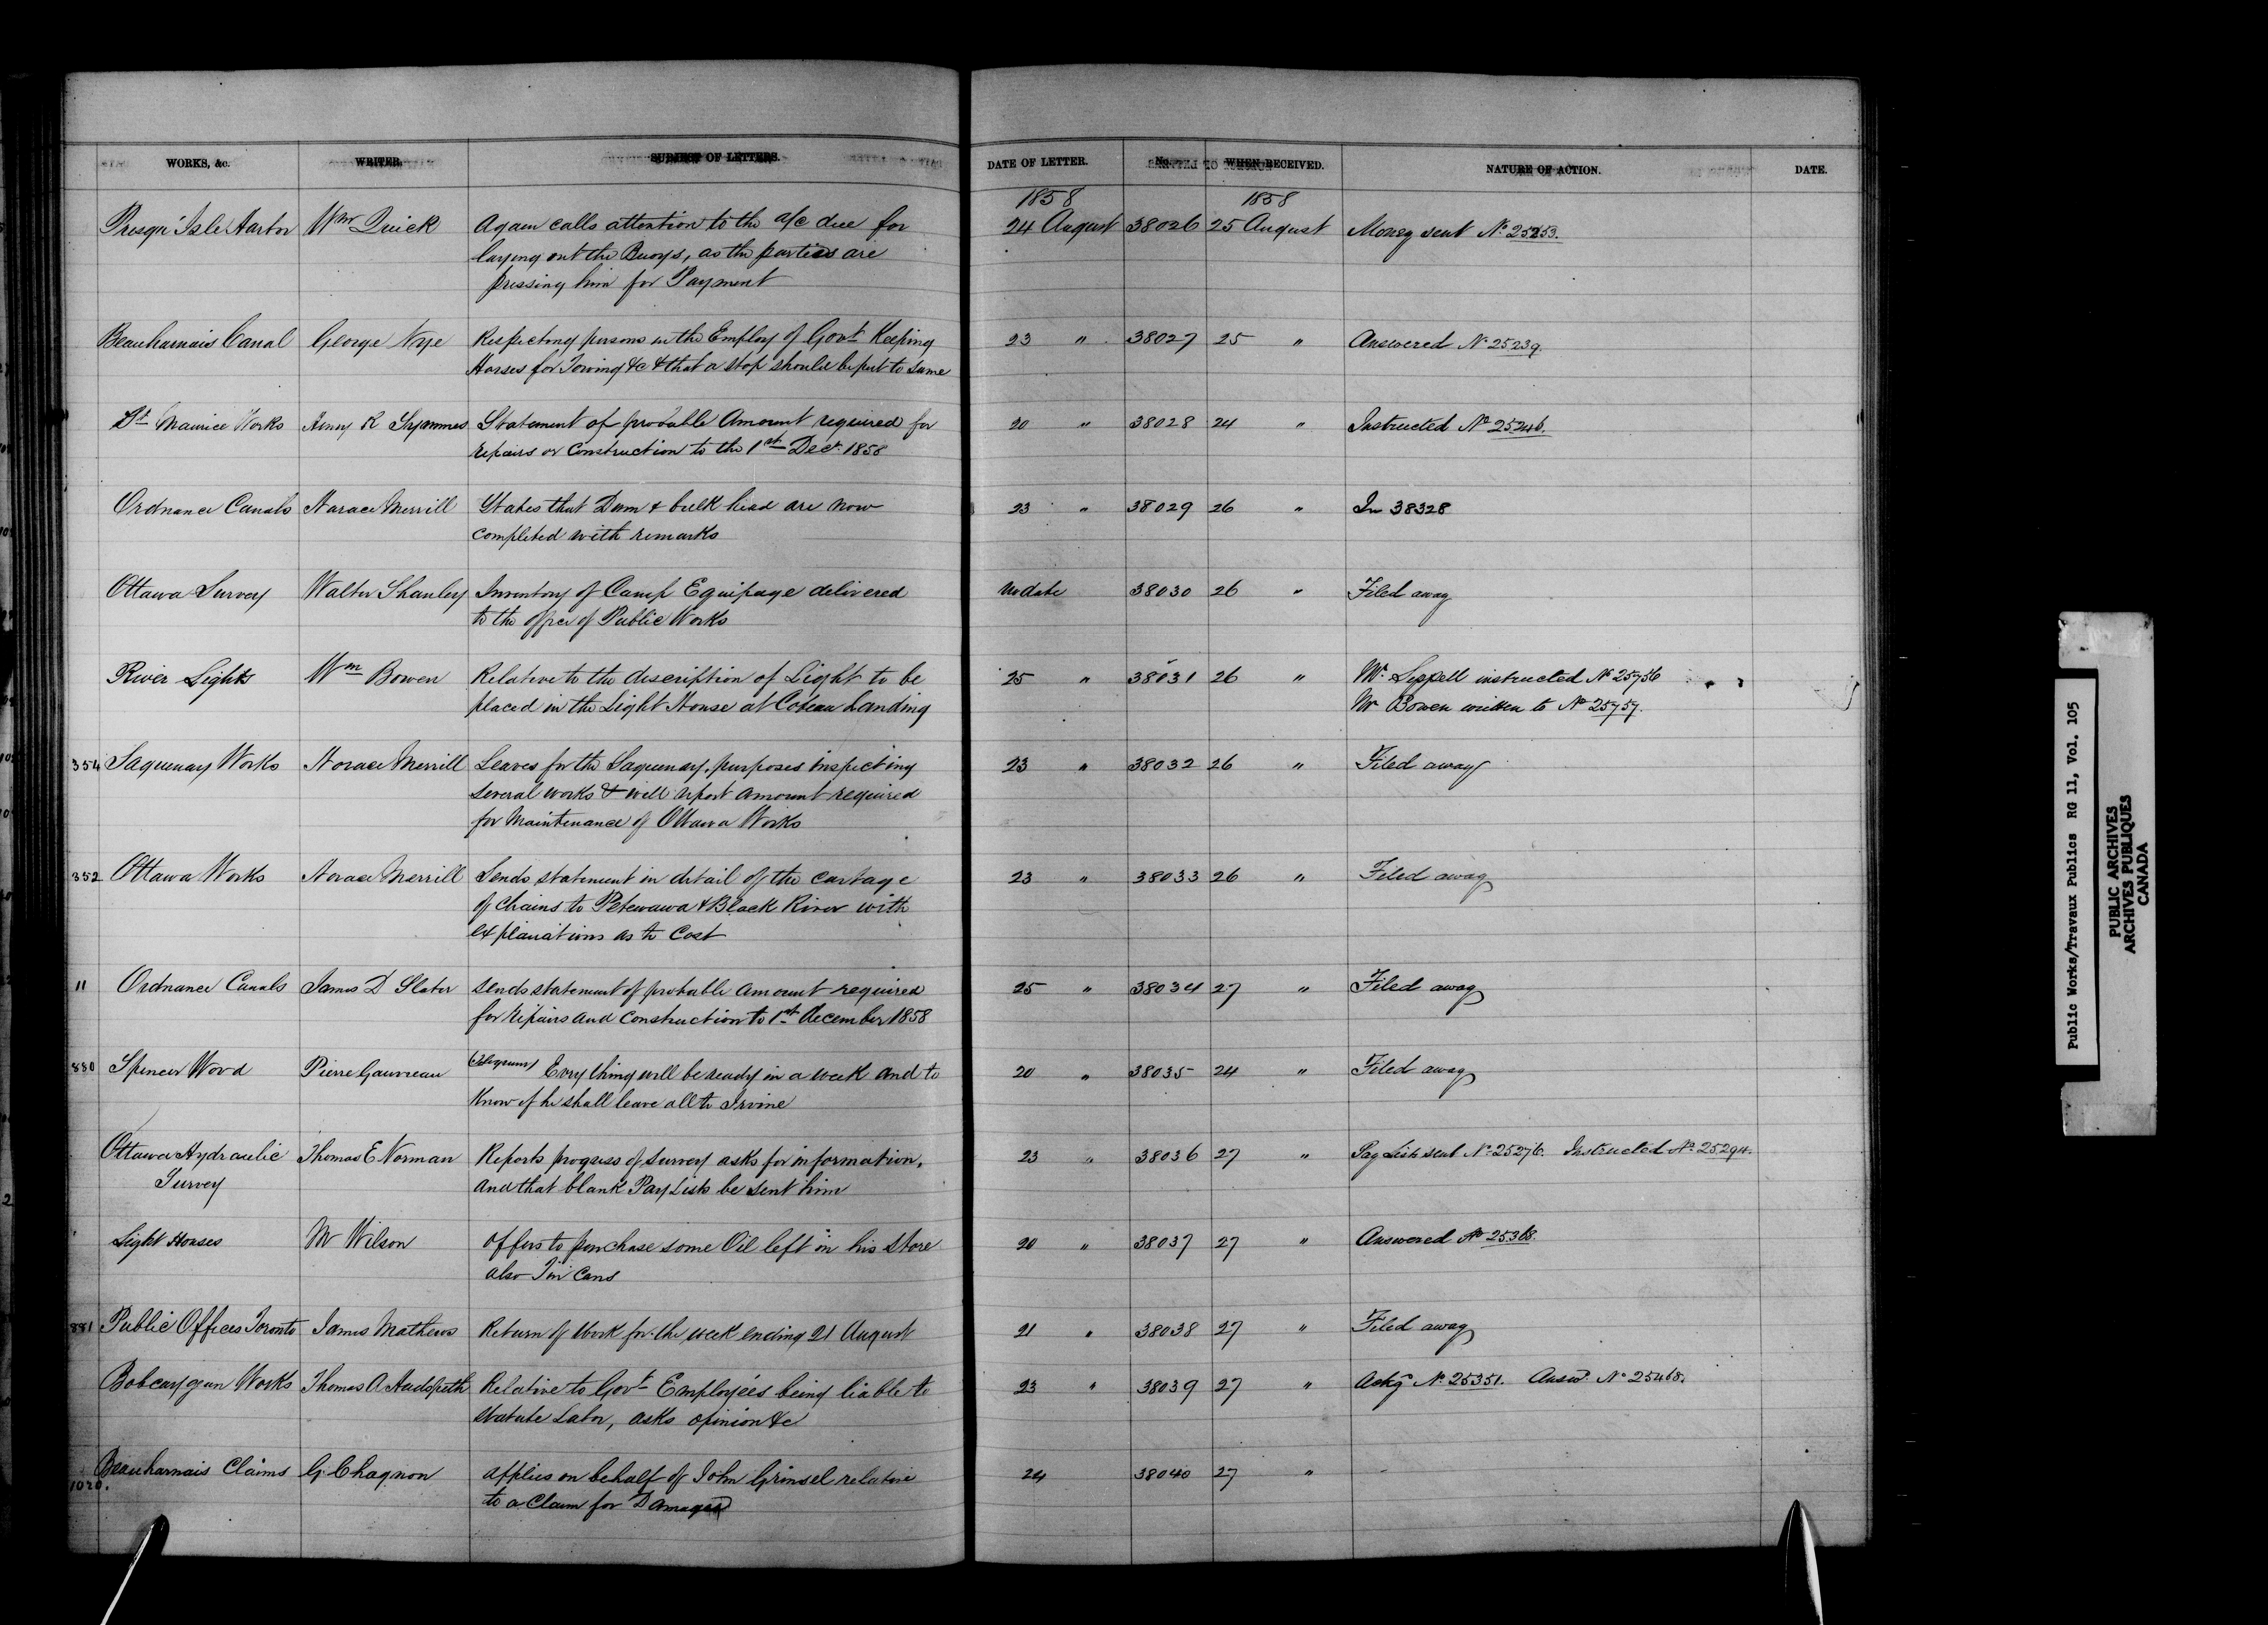 WORKS, &c. WRITER. SUBJECT OF LETTERS. DATE OF LETTER. No. WHEN RECEIVED. NATURE OF ACTION. DATE.
1858 1858
Presqu' Isle Harbor Wm Quick Again calls attention to the a/c due for 24 August 38026 25 August Money sent No 25253.
laying out the Buoys, as the parties are
pressing him for Payment
Beauharnais Canal George Nye Respecting persons in the Employ of Govt Keeping 23 " 38027 25 " Answered No 25239.
Horses for Towing &c & that a stop should be put to same
St Maurice Works Henry R Symmes Statement of probable Amount required for 20 " 38028 24 " Instructed No 25246.
repairs or Construction to the 1st Decr 1858
Ordnance Canals Horace Merrill States that Dam & bulk head are now 23 " 38029 26 " In 38328
completed with remarks
Ottawa Survey Walter Shanley Inventory of Camp Equipage delivered No date 38030 26 " Filed away
to the office of Public Works
River Lights Wm Bowen Relative to the description of Light to be 25 " 38031 26 " Mr Sippell instructed No 25756
placed in the Light House at Coteau Landing Mr Bowen written to No 25757.
354 Saguenay Works Horace Merrill Leaves for the Saguenay, purposes inspecting 23 " 38032 26 " Filed away
several works & will report amount required
for Maintenance of Ottawa Works
352 Ottawa Works Horace Merrill Sends statement in detail of the cartage 23 " 38033 26 " Filed away
of Chains to Petewawa & Black River with
explanations as to Cost
11 Ordnance Canals James D Slater Sends statement of probable amount required 25 " 38034 27 " Filed away
for repairs and Construction to 1st December 1858
880 Spencer Wood Pierre Gauvreau (Telegram) Everything will be ready in a week and to 20 " 38035 24 " Filed away
Know if he shall leave all to Irvine
Ottawa Hydraulic Thomas E Norman Reports progress of Survey asks for information, 23 " 38036 27 " Pay Lists sent No 25276. Instructed No 25294.
Survey and that blank Pay Lists be sent him
Light Houses Mr Wilson Offers to purchase some Oil left in his Store 20 " 38037 27 " Answered No 25368.
also Tin Cans
881 Public Offices Toronto James Mathews Return of Work for the week ending 21 August 21 " 38038 27 " Filed away
Bobcaygean Works Thomas A Hudspeth Relative to Govt Employées being liable to 23 " 38039 27 " Ackg No 25351. Answd No 25468.
Statute Labor, asks opinion &c
Beauharnais Claims G. Chagnon Applies on behalf of John Grinsel relative 24 38040 27 "
1020. to a Claim for Damages
Public Works/Travaux Publics RG 11, Vol. 105
PUBLIC ARCHIVES
ARCHIVES PUBLIQUES
CANADA